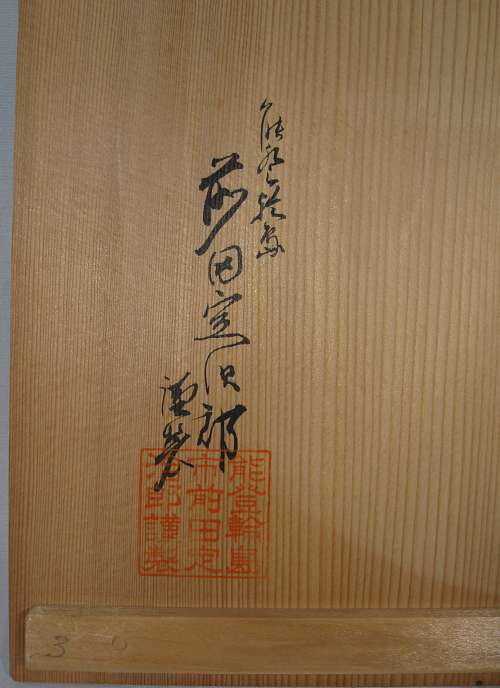 能登輪島
前田定次郎
謹製
能登輪島
市前田定
次郎謹製
30